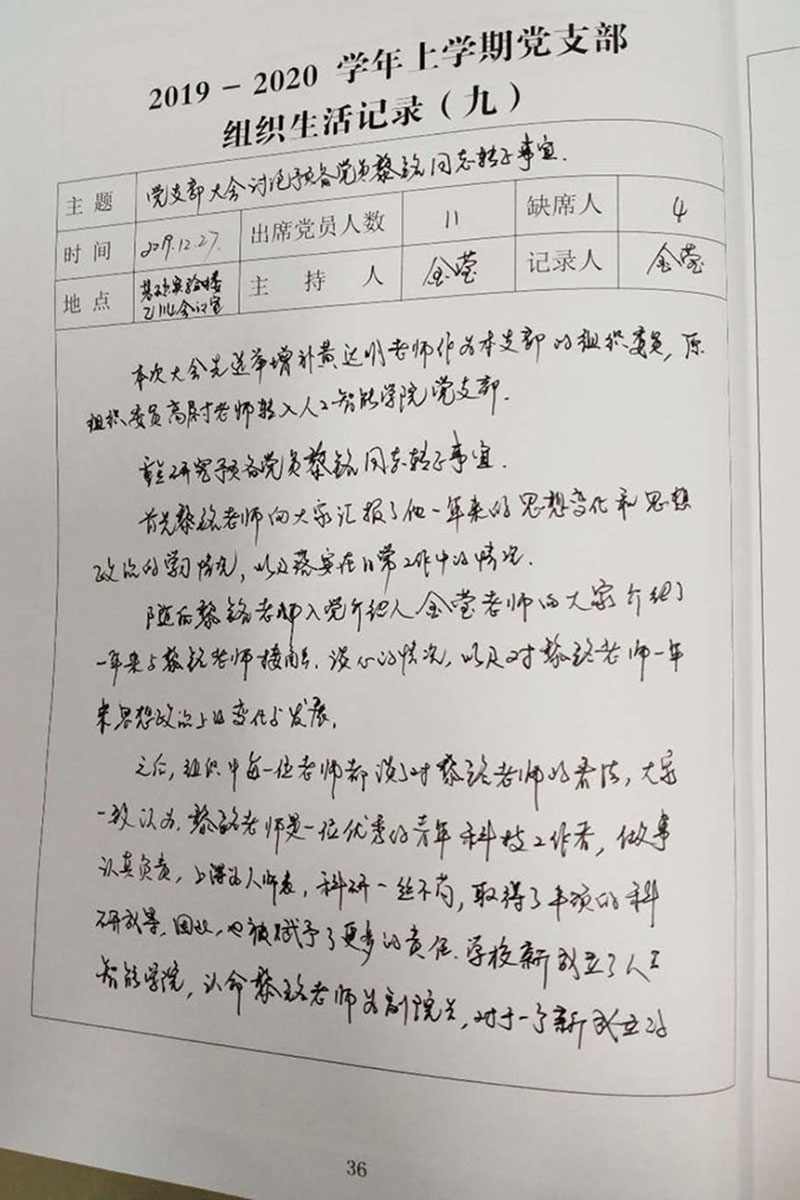 2019－2020 学年上学期党支部
组织生活记录（九）
主 题 党支部大会讨论预备党员黎铭同志转正事宜.
时 间 2019.12.27. 出席党员人数 11 缺席人 4
地 点 基础实验楼 乙114会议室 主 持 人 金莹 记录人 金莹
本次大会先选举增补黄达明老师作为本支部的组织委员, 原
组织委员高尉老师转入人工智能学院党支部.
重点研究预备党员黎铭同志转正事宜.
首先黎铭老师向大家汇报了他一年来的思想变化和思想
政治的学习情况, 以及落实在日常工作中的情况.
随后黎铭老师入党介绍人金莹老师向大家介绍了
一年来与黎铭老师接触、谈心的情况, 以及对黎铭老师一年
来思想政治上的变化与发展.
之后, 组织中每一位老师都谈了对黎铭老师的看法, 大家
一致认为, 黎铭老师是一位优秀的青年科技工作者, 做事
认真负责, 上课为人师表, 科研一丝不苟, 取得了丰硕的科
研成果. 因此, 也被赋予了更多的责任. 学校新成立了人工
智能学院, 认命黎铭老师为副院长, 对于一个新成立的
36